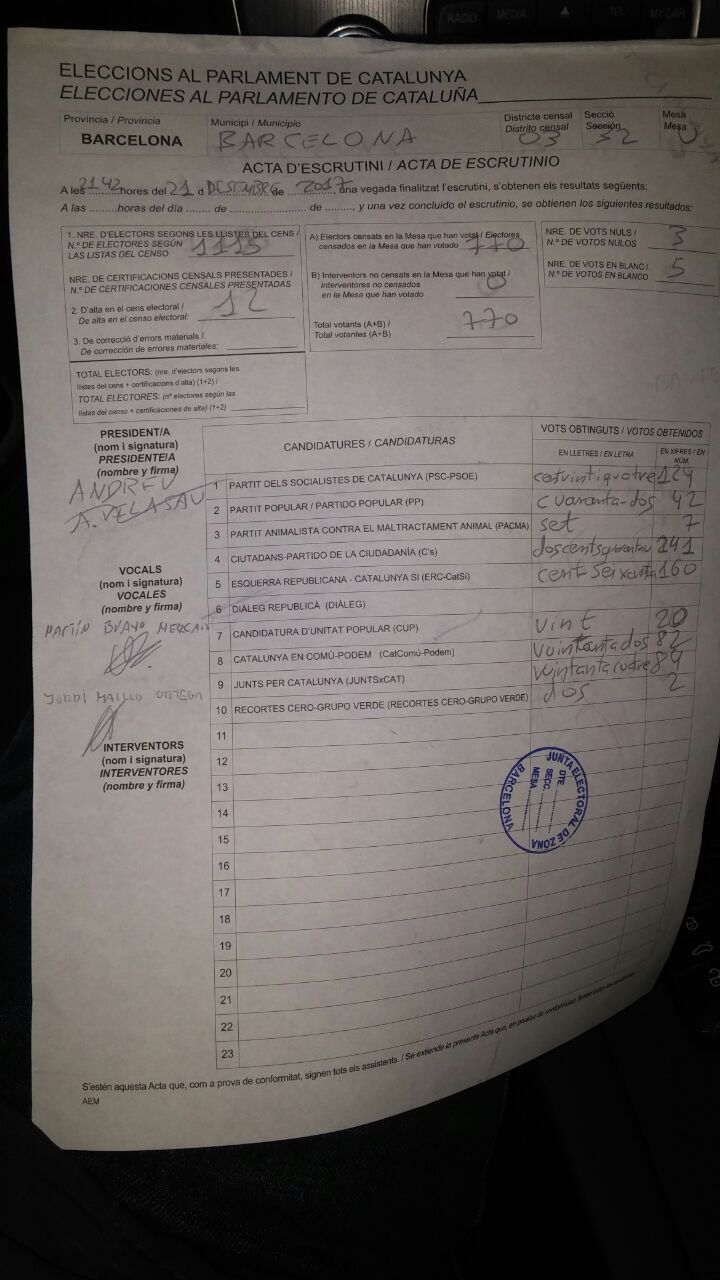 RADIO MEDIA TEL MY CAR
ELECCIONS AL PARLAMENT DE CATALUNYA
ELECCIONES AL PARLAMENTO DE CATALUÑA
Província / Provincia
BARCELONA
Municipi / Municipio
BARCELONA
Districte censal
Distrito censal
03
Secció
Sección
52
Mesa
Mesa
U
ACTA D'ESCRUTINI / ACTA DE ESCRUTINIO
A les 2142 hores del 21 d DESEMBRE de 2017, una vegada finalitzat l'escrutini, s'obtenen els resultats següents:
A las ......... horas del día ....... de .................... de ........, y una vez concluido el escrutinio, se obtienen los siguientes resultados:
1. NRE. D'ELECTORS SEGONS LES LLISTES DEL CENS /
N.º DE ELECTORES SEGÚN
LAS LISTAS DEL CENSO
1115
NRE. DE CERTIFICACIONS CENSALS PRESENTADES /
N.º DE CERTIFICACIONES CENSALES PRESENTADAS
2. D'alta en el cens electoral /
De alta en el censo electoral: 12
3. De correcció d'errors materials /
De corrección de errores materiales:
TOTAL ELECTORS: (nre. d'electors segons les
llistes del cens + certificacions d'alta) (1+2) /
TOTAL ELECTORES: (nº electores según las
listas del censo + certificaciones de alta) (1+2)
A) Electors censats en la Mesa que han votat / Electores
censados en la Mesa que han votado 770
B) Interventors no censats en la Mesa que han votat /
Interventores no censados
en la Mesa que han votado 0
Total votants (A+B) /
Total votantes (A+B) 770
NRE. DE VOTS NULS /
N.º DE VOTOS NULOS 3
NRE. DE VOTS EN BLANC /
N.º DE VOTOS EN BLANCO 5
PRESIDENT/A
(nom i signatura)
PRESIDENTE/A
(nombre y firma)
ANDREU
A. VELASAU
VOCALS
(nom i signatura)
VOCALES
(nombre y firma)
MARTÍN BRAVO
JORDI MAILLO ORTEGA
INTERVENTORS
(nom i signatura)
INTERVENTORES
(nombre y firma)
CANDIDATURES / CANDIDATURAS
VOTS OBTINGUTS / VOTOS OBTENIDOS
EN LLETRES / EN LETRA
EN XIFRES / EN NÚM.
1 PARTIT DELS SOCIALISTES DE CATALUNYA (PSC-PSOE) 124
2 PARTIT POPULAR / PARTIDO POPULAR (PP) cuaranta-dos 42
3 PARTIT ANIMALISTA CONTRA EL MALTRACTAMENT ANIMAL (PACMA) set 7
4 CIUTADANS-PARTIDO DE LA CIUDADANÍA (C's) 241
5 ESQUERRA REPUBLICANA - CATALUNYA SI (ERC-CatSí) cent seixanta 160
6 DIÀLEG REPUBLICÀ (DIÀLEG)
7 CANDIDATURA D'UNITAT POPULAR (CUP) vint 20
8 CATALUNYA EN COMÚ-PODEM (CatComú-Podem) vuintantados 82
9 JUNTS PER CATALUNYA (JUNTSxCAT) 84
10 RECORTES CERO-GRUPO VERDE (RECORTES CERO-GRUPO VERDE) dos 2
11
12
13
14
15
16
17
18
19
20
21
22
23
JUNTA ELECTORAL DE ZONA
BARCELONA
DTE.
SECC.
MESA
S'estén aquesta Acta que, com a prova de conformitat, signen tots els assistents. / Se extiende la presente Acta que, en prueba de conformidad, firman todos los asistentes.
AEM